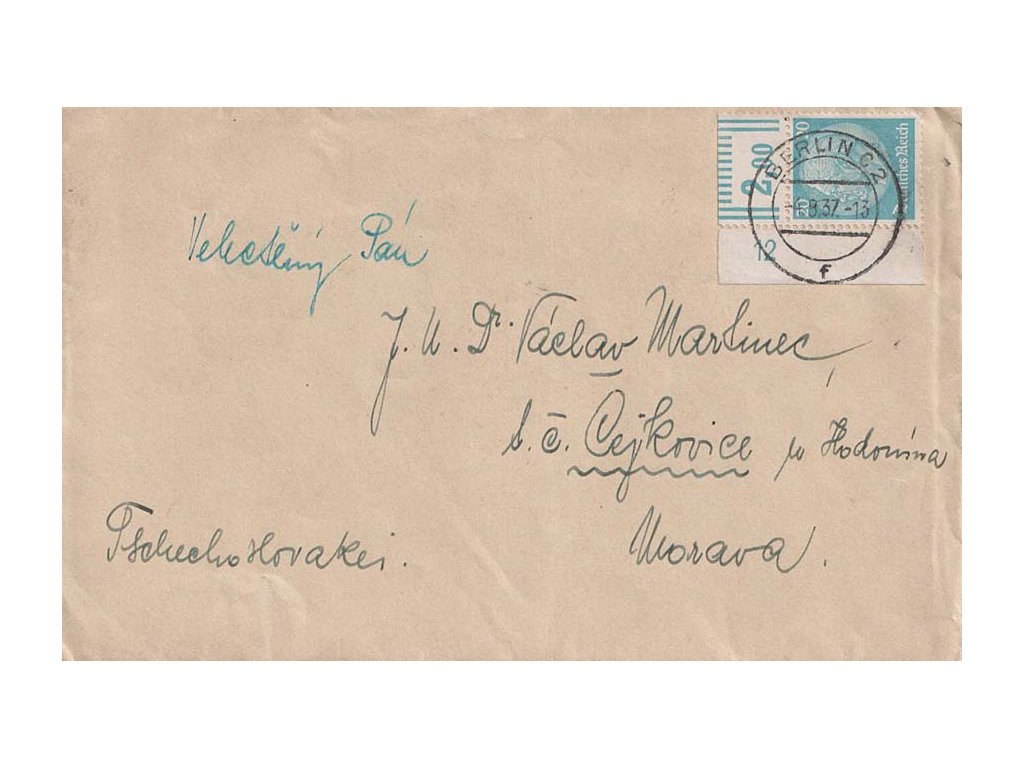 2.00
20
20
Deutsches Reich
12
BERLIN C 2
-4.9.37.-13
f
Velectěný Pán
J. U. Dr. Václav Martinec,
s. č. Čejkovice u Hodonína
Morava.
Tschechoslovakei.